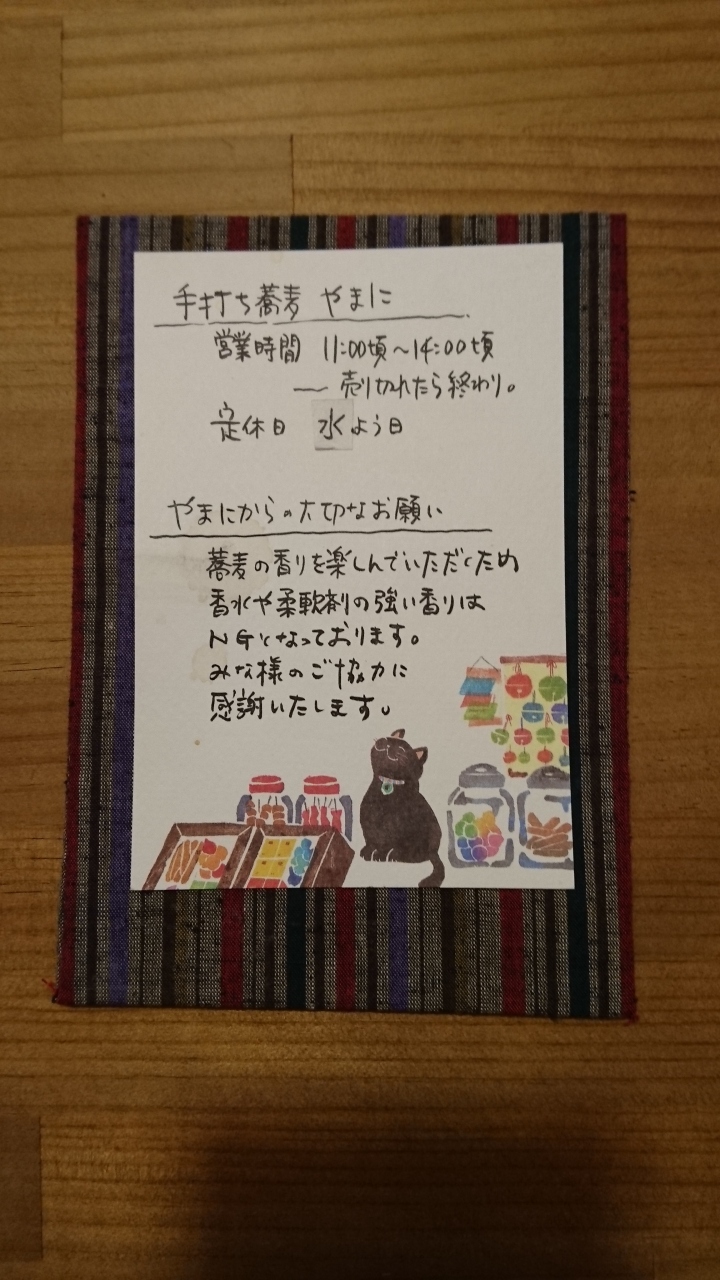 手打ち蕎麦 やまに
営業時間 11:00頃~14:00頃
— 売り切れたら終わり。
定休日 水よう日
やまにからの大切なお願い
蕎麦の香りを楽しんでいただくため
香水や柔軟剤の強い香りは
NGとなっております。
みな様のご協力に
感謝いたします。